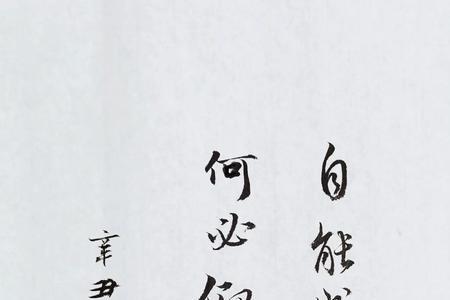 自能
何必
辛丑